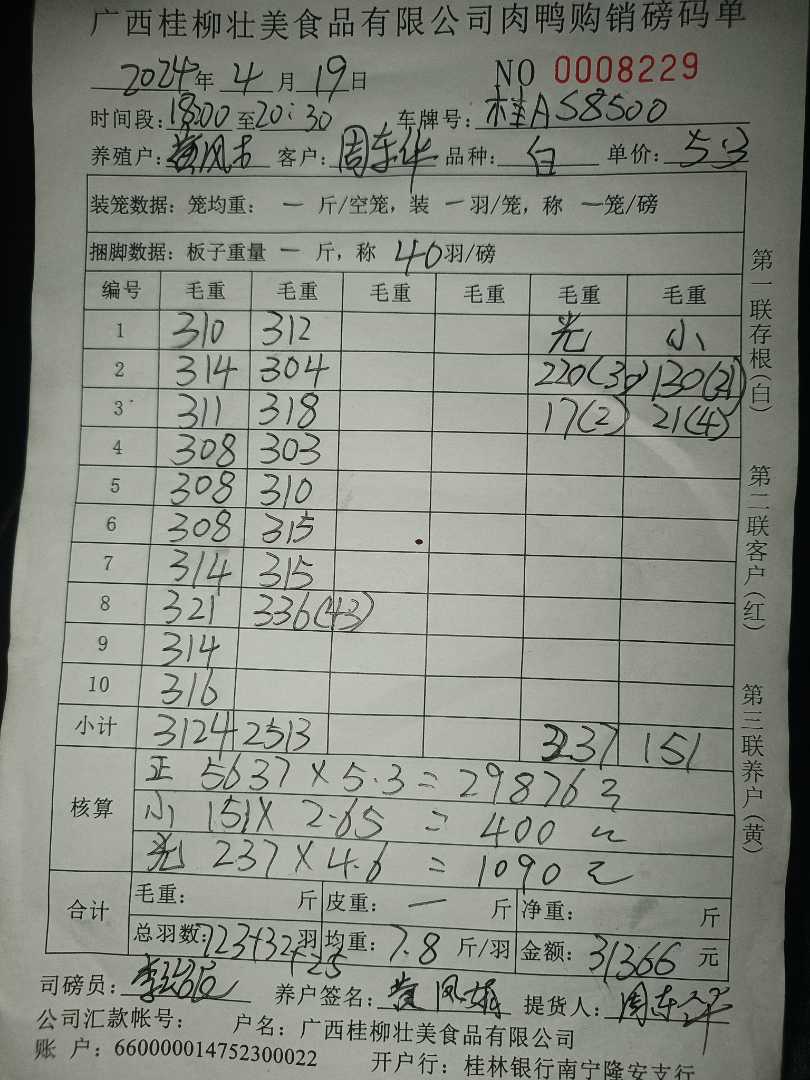 广西桂柳壮美食品有限公司肉鸭购销磅码单
2024年 4 月 19 日 NO 0008229
时间段:18:00至20:30 车牌号:桂A58500
养殖户: 客户:周东华 品种:白 单价:5.3
装笼数据:笼均重: 一 斤/空笼,装 一 羽/笼,称 一 笼/磅
捆脚数据:板子重量 一 斤,称 40羽/磅
编号 毛重 毛重 毛重 毛重 毛重 毛重
1 310 312 光 小
2 314 304 220(30) 130(21)
3 311 318 17(2) 21(4)
4 308 303
5 308 310
6 308 315
7 314 315
8 321 336(43)
9 314
10 316
小计 3124 2513 237 151
核算
正 5637×5.3=29876元
小 151×2.65=400元
光 237×4.6=1090元
合计
毛重: 斤 皮重: 一 斤 净重: 斤
总羽数:723+32+25羽 均重:7.8 斤/羽 金额:31366 元
司磅员: 养户签名:黄凤娟 提货人:周东华
公司汇款帐号: 户名:广西桂柳壮美食品有限公司
账 户:660000014752300022 开户行:桂林银行南宁隆安支行
第一联存根(白)
第二联客户(红)
第三联养户(黄)